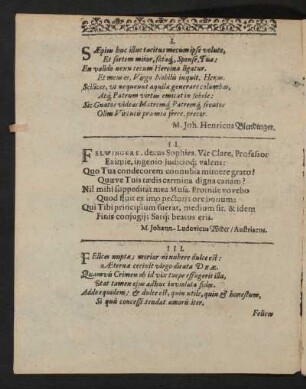 I.
SÆpius huc illuc tacitus mecum ipse voluto,
Et sortem miror, Sponse, Tuam:
En valido nexu tecum Heroina ligatur.
Et memor es, Virgo Nobilis inquit, Herm.
Scilicet, ut nequeunt aquilæ generare columbas,
Atq; Patrum virtus emicat in sobole:
Sic Gnatos videas Matremq; Patremq; secutos
Olim Virtutis præmia ferre, precor.
M. Joh. Henricus Blendinger.
II.
FELWINGERE, decus Sophies, Vir Clare, Professor
Eximie, ingenio judicioq; valens:
Quo Tua condecorem connubia munere grato?
Quæve Tuis tædis carmina digna canam?
Nil mihi suppeditat mea Musa. Proinde vovebo
Quod fluit ex imo pectoris ore bonum:
Qui Tibi principium fuerat, medium sit, & idem
Finis conjugij: Satis beatus eris.
M. Johann-Ludovicus Weber / Austriacus.
III.
FElices nuptæ; morior ni nubere dulce est:
Æterna cecinit virgo dicata DEÆ.
Quamvis Crimen id vix turpe effugerit illa,
Stat tamen ejus adhuc inviolata fides.
Adde equidem; & dulce est, quin utile, quin & honestum,
Si quâ concessi tendat amoris iter.
Felices